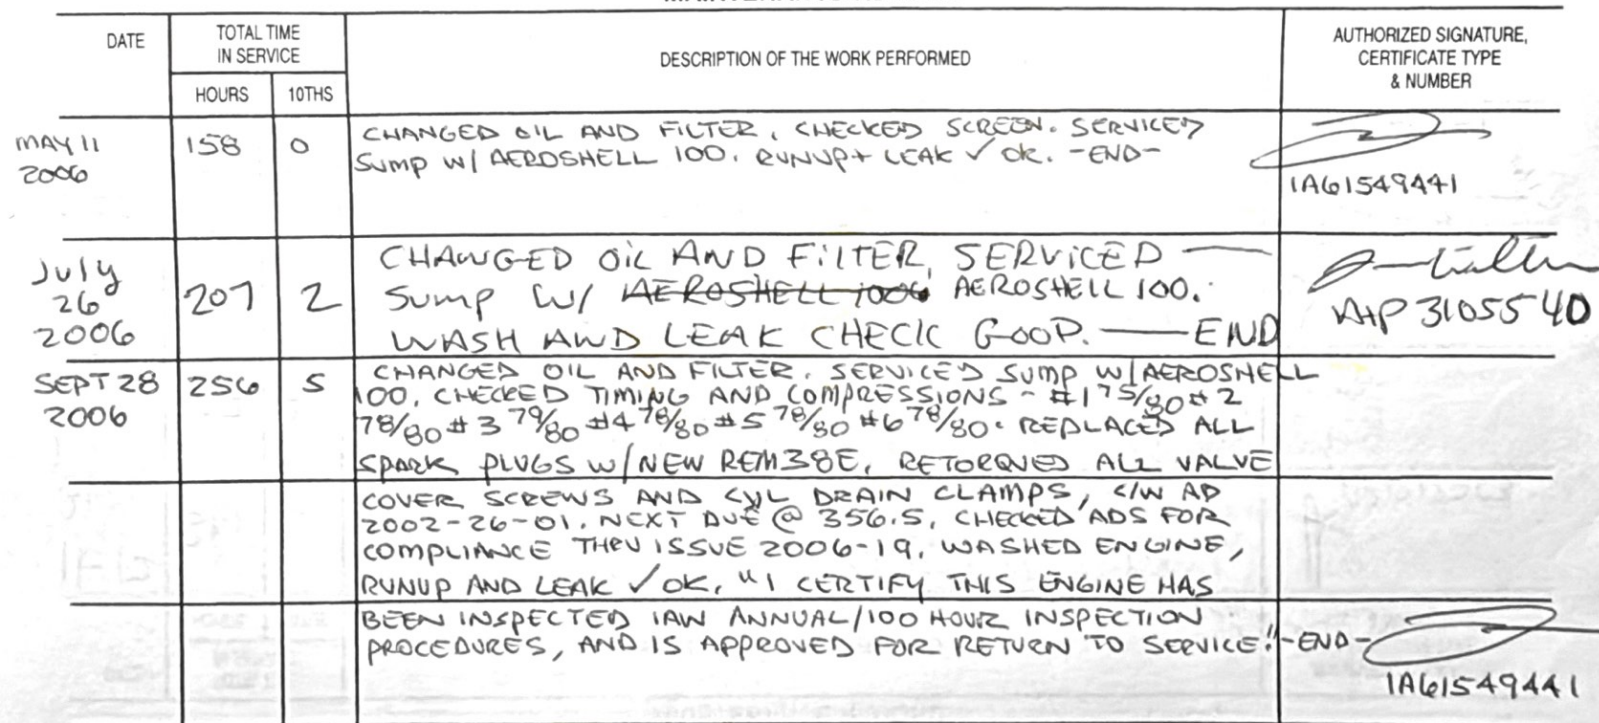 DATE
TOTAL TIME
IN SERVICE
HOURS
10THS
DESCRIPTION OF THE WORK PERFORMED
AUTHORIZED SIGNATURE,
CERTIFICATE TYPE
& NUMBER
MAY 11
2006
158
0
CHANGED OIL AND FILTER, CHECKED SCREEN. SERVICED
SUMP W/ AEROSHELL 100. RUNUP + LEAK ✓ OK. -END-
IA61549441
July
26
2006
207
2
CHANGED OIL AND FILTER, SERVICED —
SUMP W/ AEROSHELL 100 AEROSHELL 100.
WASH AND LEAK CHECK GOOD. — END
A+P 3105540
SEPT 28
2006
256
5
CHANGED OIL AND FILTER. SERVICED SUMP W/AEROSHELL
100, CHECKED TIMING AND COMPRESSIONS - #1 75/80 #2
78/80 #3 79/80 #4 78/80 #5 78/80 #6 78/80. REPLACED ALL
SPARK PLUGS W/NEW REM38E, RETORQUED ALL VALVE
COVER SCREWS AND CYL DRAIN CLAMPS, C/W AD
2002-26-01. NEXT DUE @ 356.5, CHECKED ADS FOR
COMPLIANCE THRU ISSUE 2006-19, WASHED ENGINE,
RUNUP AND LEAK ✓ OK, "I CERTIFY THIS ENGINE HAS
BEEN INSPECTED IAW ANNUAL/100 HOUR INSPECTION
PROCEDURES, AND IS APPROVED FOR RETURN TO SERVICE." -END-
IA61549441